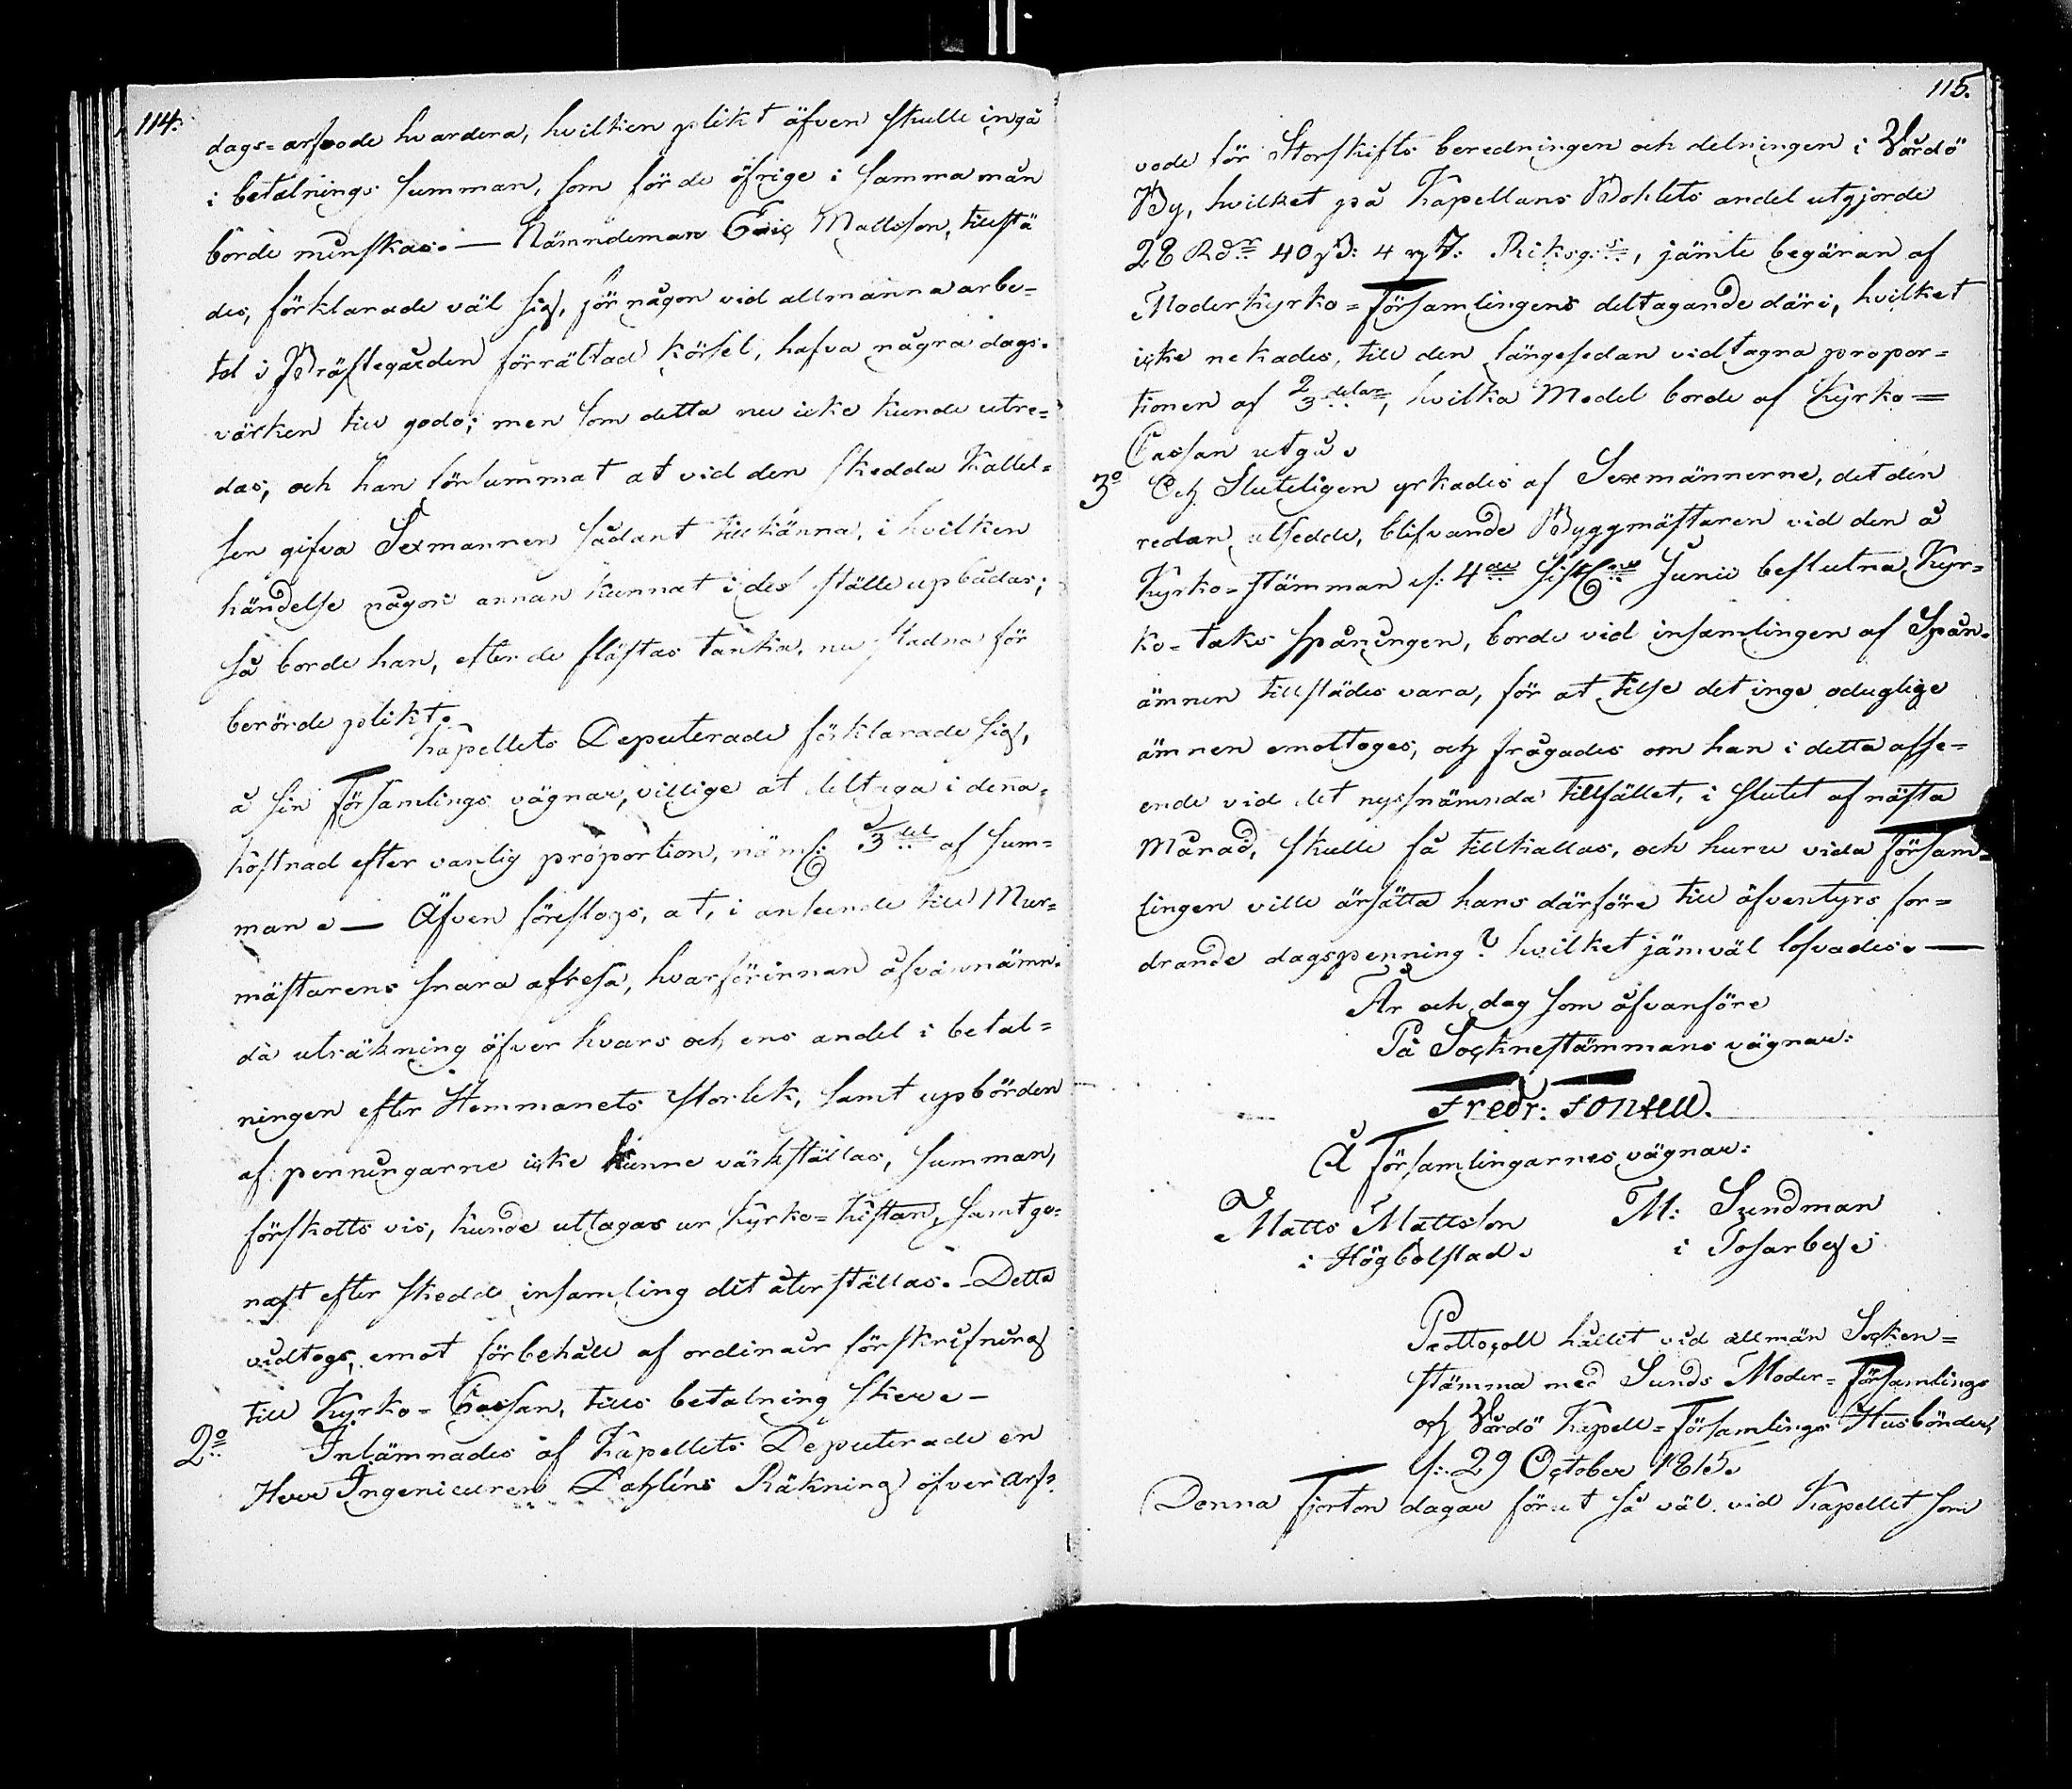 114.
dags=arfvode hvardera, hvilken plikt äfven skulle ingå
i betalnings summan, som för de öfrige i samma mån
börde minskas. — Nämndeman Eric Mattsson, tillstä
des, förklarade väl sig, för någon vid allmänna arbe=
tet i Prästegården förrättad körsel, hafva några dags=
värken till godo; men som detta nu icke kunde utre=
das, och han försummat at vid den skedda Kallel=
sen gifva Sexmannen sådant tillkänna, i hvilken
händelse någon annan kunnat i des ställe upbådas;
så borde han, efter de flästas tanka, nu stadna för
berörde plikt.
Kapellets Deputerade förklarade sig,
å sin Församlings vägnar, villige at deltaga i denna
kostnad efter vanlig proportion, näml: 3del af sum=
man. — Äfven föreslogs, at, i anseende till Mur=
mästarens snara afresa, hvarförinnan åfvannämn=
da uträkning öfver hvars och ens andel i betal=
ningen efter Hemmanets storlek, samt upbörden
af penningarne icke kunne värkställas, summan,
förskotts vis, kunde uttagas ur Kyrko=Kistan, samt ge=
nast efter skedd insamling dit återställas. - Detta
vidtogs, emot förbehåll af ordinair förskrifning
till Kyrko=Cassan, tills betalning sker. -
2o Inlämnades af Kapellets Deputerade en
Herr Ingenieuren Dahlins Räkning öfver arf=
115.
vode för Storskifts beredningen och delningen i Vårdö
By, hvilket på Kapellans Bohlets andel utgjorde
28 Rdr 40 ß: 4 rf: Riksg:s, jämte begäran af
Moderkyrko=Församlingens deltagande däri, hvilket
icke nekades, till den längesedan vidtagna propor=
tionen af 2/3 delar, hvilka Medel borde af Kyrko=
Cassan utgå.
3o Och Sluteligen yrkades af Sexmännerne, det den
redan utsedde, blifvande Byggmästaren vid den å
Kyrko=stämman d. 4de sistl:ne Junii beslutna Kyr=
ko=taks spåningen, borde vid insamlingen af Spån=
ämnen tillstädes vara, för at tillse det inge oduglige
ämnen emottoges, och frågades om han i detta afse=
ende vid det nyssnämnda tillfället, i slutet af nästa
Månad, skulle få tillkallas, och huru vida Försam=
lingen ville ärsätta hans därföre till äfventyrs for=
drande dagspenning? hvilket jämväl lofvades. —
År och dag som åfvanföre
På Socknestämmans vägnar:
Fredr: Fontell.
Å Församlingarnes vägnar:
Matts Mattsson M: Sundman
i Högbolstad. i Tosarby.
Prottocoll hållit vid allmän Socken=
stämma med Sunds Moder=Församlings
och Vårdö Kapell=Församlings Husbönder,
d: 29 October 1815.
Denna Fjorton dagar förut så väl vid Kapellet som